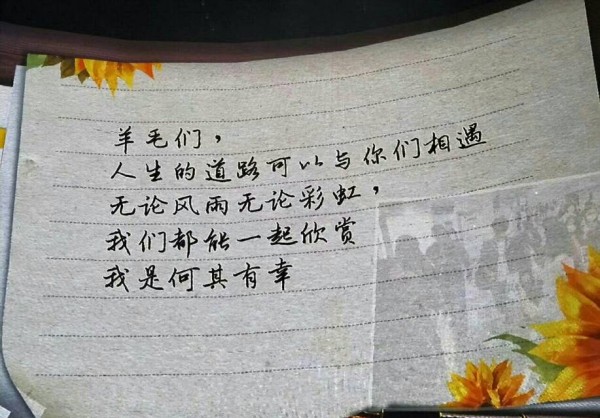 羊毛们，
人生的道路可以与你们相遇
无论风雨无论彩虹，
我们都能一起欣赏
我是何其有幸